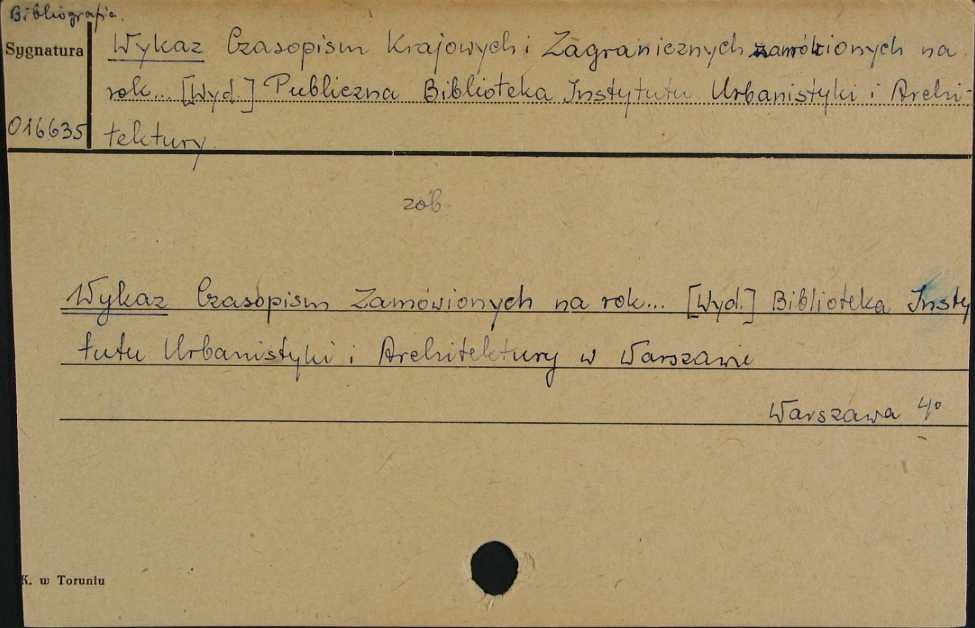 Bibliografia.
Sygnatura
016635
Wykaz Czasopism Krajowych i Zagranicznych zamówionych na
rok... [Wyd.] Publiczna Biblioteka Instytutu Urbanistyki i Archi-
tektury
zob.
Wykaz Czasopism Zamówionych na rok... [Wyd.] Biblioteka Insty
tutu Urbanistyki i Architektury w Warszawie
Warszawa 4°
K. w Toruniu